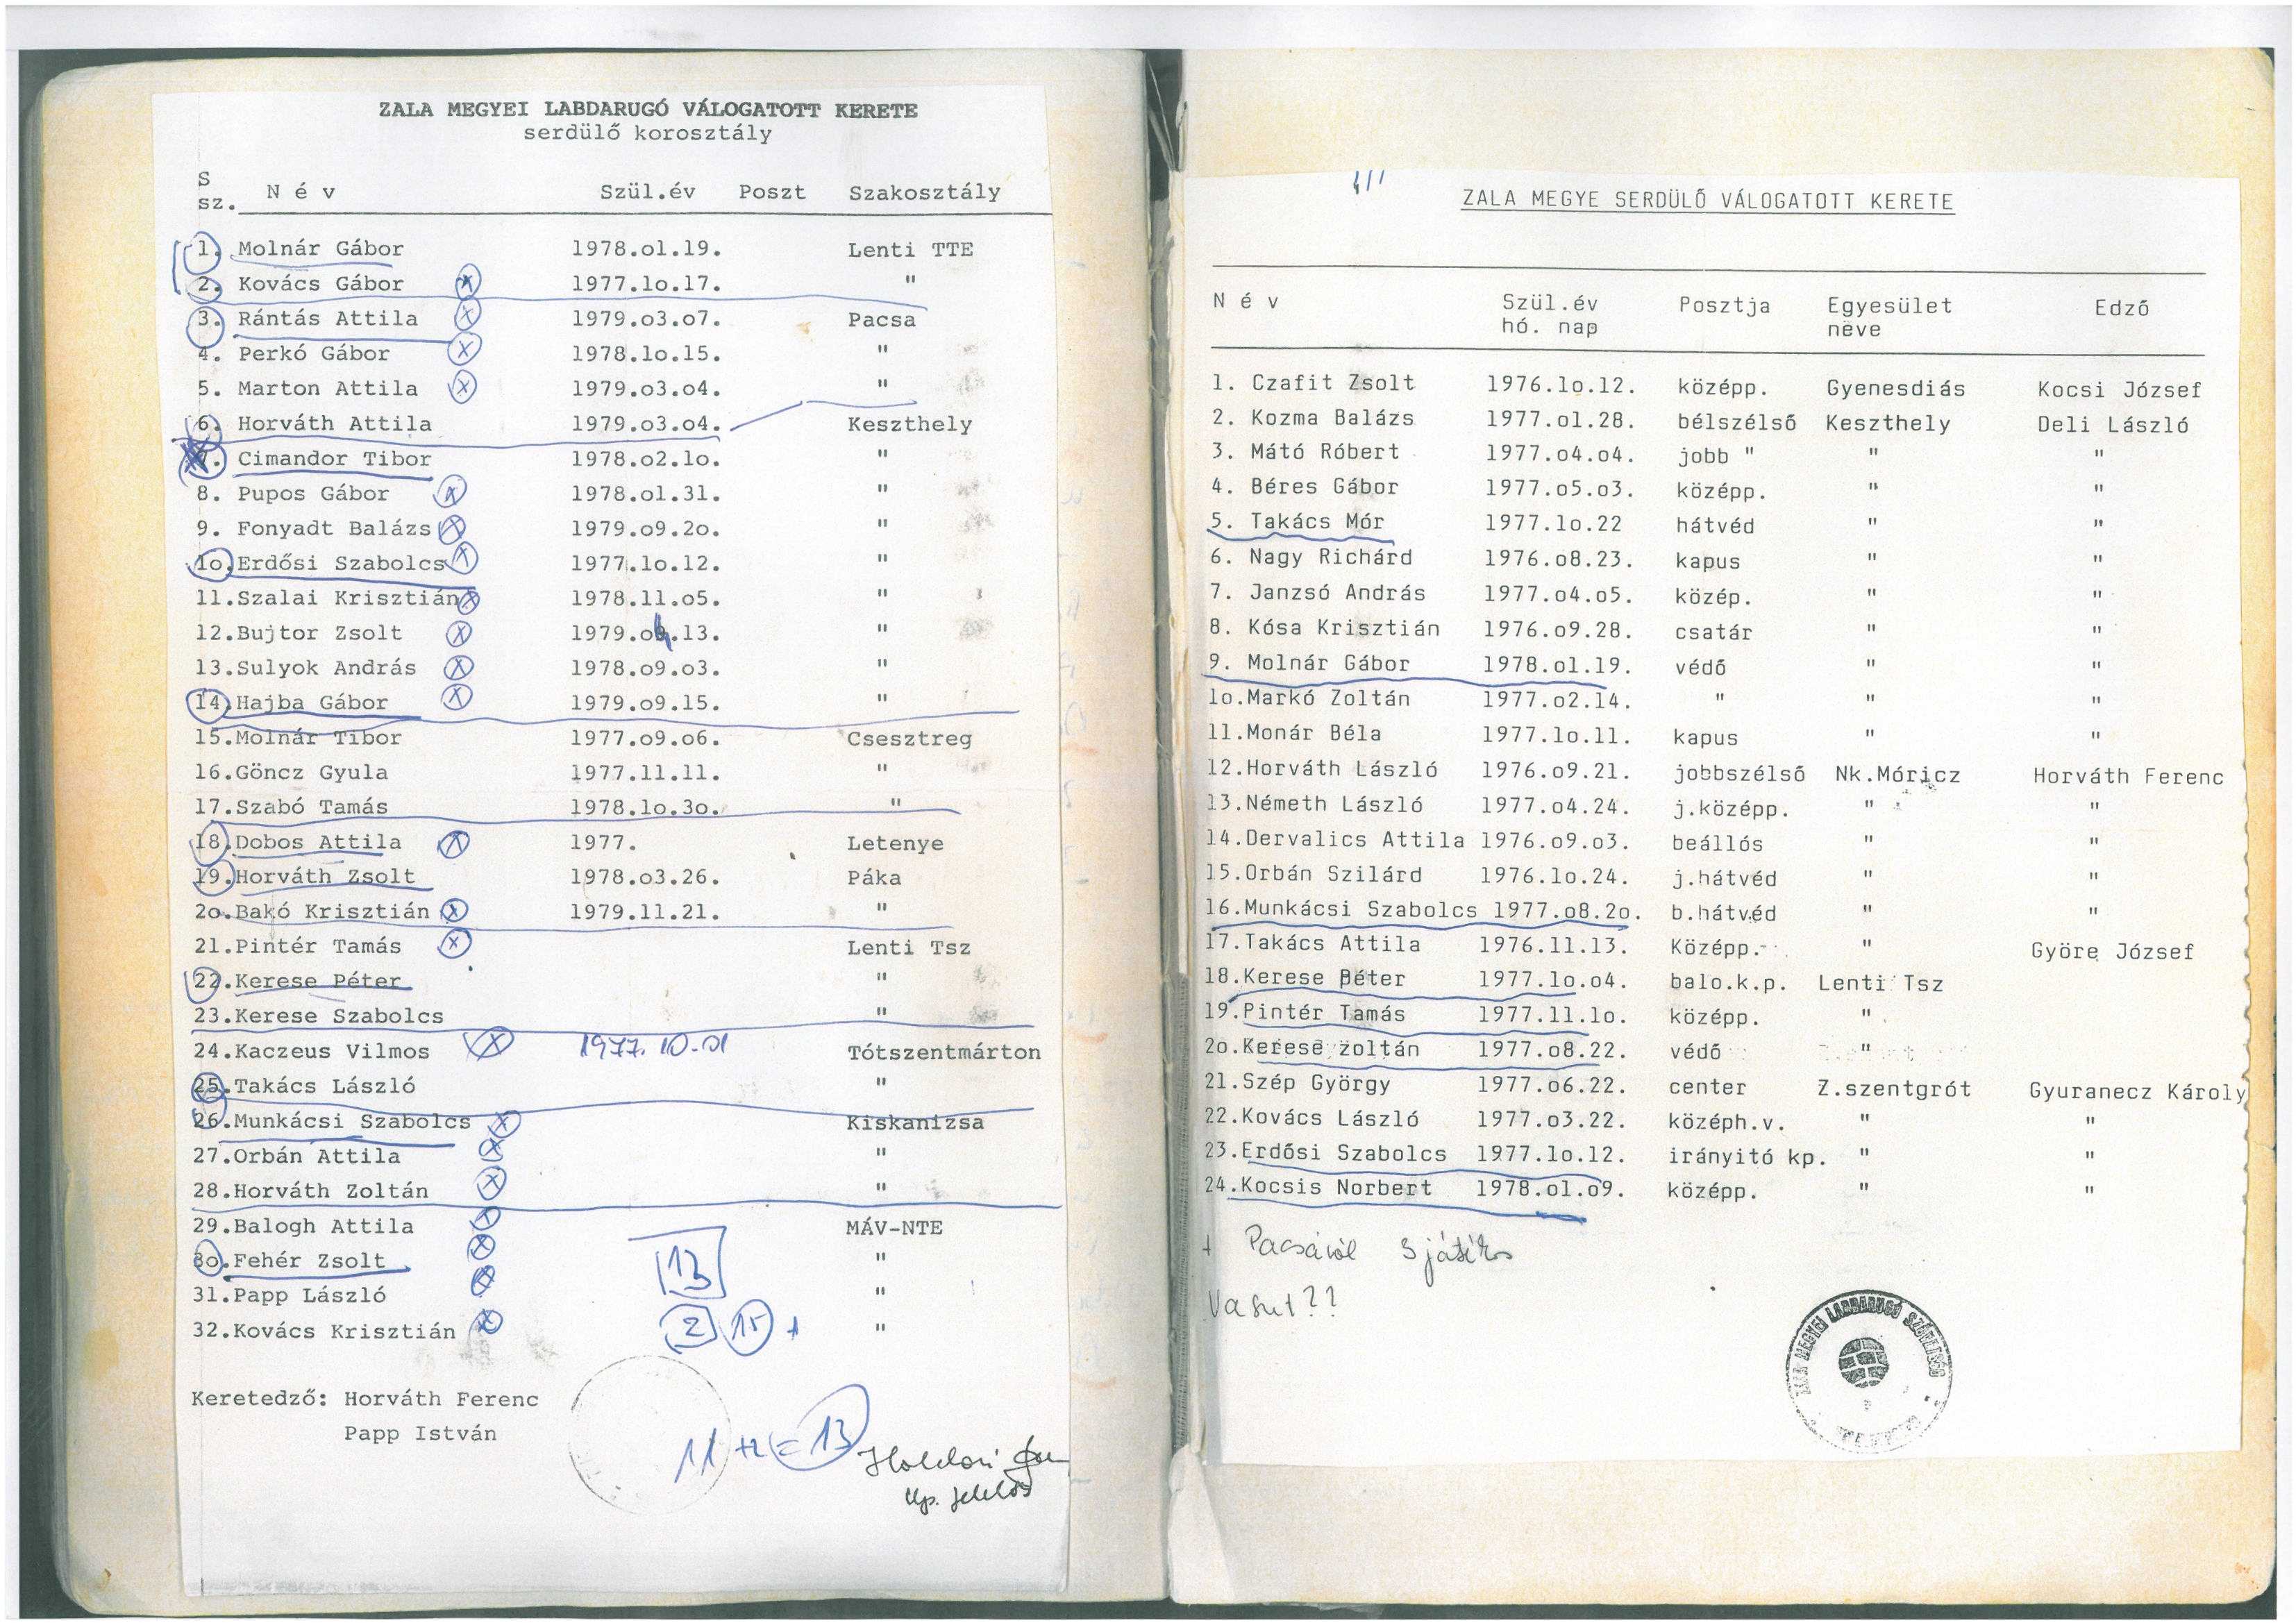 ZALA MEGYEI LABDARUGÓ VÁLOGATOTT KERETE
serdülő korosztály
S
sz. N é v Szül.év Poszt Szakosztály
1. Molnár Gábor 1978.o1.19. Lenti TTE
2. Kovács Gábor 1977.1o.17. "
3. Rántás Attila 1979.o3.o7. Pacsa
4. Perkó Gábor 1978.1o.15. "
5. Marton Attila 1979.o3.o4. "
6. Horváth Attila 1979.o3.o4. Keszthely
7. Cimandor Tibor 1978.o2.1o. "
8. Pupos Gábor 1978.o1.31. "
9. Fonyadt Balázs 1979.o9.2o. "
1o.Erdősi Szabolcs 1977.1o.12. "
11.Szalai Krisztián 1978.11.o5. "
12.Bujtor Zsolt 1979.o4.13. "
13.Sulyok András 1978.o9.o3. "
14.Hajba Gábor 1979.o9.15. "
15.Molnár Tibor 1977.o9.o6. Csesztreg
16.Göncz Gyula 1977.11.11. "
17.Szabó Tamás 1978.1o.3o. "
18.Dobos Attila 1977. Letenye
19.Horváth Zsolt 1978.o3.26. Páka
2o.Bakó Krisztián 1979.11.21. "
21.Pintér Tamás Lenti Tsz
22.Kerese Péter "
23.Kerese Szabolcs "
24.Kaczeus Vilmos 1977.10.01 Tótszentmárton
25.Takács László "
26.Munkácsi Szabolcs Kiskanizsa
27.Orbán Attila "
28.Horváth Zoltán "
29.Balogh Attila MÁV-NTE
3o.Fehér Zsolt "
31.Papp László "
32.Kovács Krisztián "
13
2 15
Keretedző: Horváth Ferenc
Papp István
11+2=13
ZALA MEGYE SERDÜLŐ VÁLOGATOTT KERETE
N é v Szül.év Posztja Egyesület Edző
hó. nap neve
1. Czafit Zsolt 1976.1o.12. középp. Gyenesdiás Kocsi József
2. Kozma Balázs 1977.o1.28. bélszélső Keszthely Deli László
3. Mátó Róbert 1977.o4.o4. jobb " " "
4. Béres Gábor 1977.o5.o3. középp. " "
5. Takács Mór 1977.1o.22 hátvéd " "
6. Nagy Richárd 1976.o8.23. kapus " "
7. Janzsó András 1977.o4.o5. közép. " "
8. Kósa Krisztián 1976.o9.28. csatár " "
9. Molnár Gábor 1978.o1.19. védő " "
1o.Markó Zoltán 1977.o2.14. " " "
11.Monár Béla 1977.1o.11. kapus " "
12.Horváth László 1976.o9.21. jobbszélső Nk.Móricz Horváth Ferenc
13.Németh László 1977.o4.24. j.középp. " "
14.Dervalics Attila 1976.o9.o3. beállós " "
15.Orbán Szilárd 1976.1o.24. j.hátvéd " "
16.Munkácsi Szabolcs 1977.o8.2o. b.hátvéd " "
17.Takács Attila 1976.11.13. Középp. " Györe József
18.Kerese Péter 1977.1o.o4. balo.k.p. Lenti Tsz
19.Pintér Tamás 1977.11.1o. középp. "
2o.Kerese zoltán 1977.o8.22. védő "
21.Szép György 1977.o6.22. center Z.szentgrót Gyuranecz Károly
22.Kovács László 1977.o3.22. középh.v. " "
23.Erdősi Szabolcs 1977.1o.12. irányitó kp. " "
24.Kocsis Norbert 1978.o1.o9. középp. " "
+ Pacsáról 3 játékos
Vasut??
ZALA MEGYEI LABDARUGÓ SZÖVETSÉG